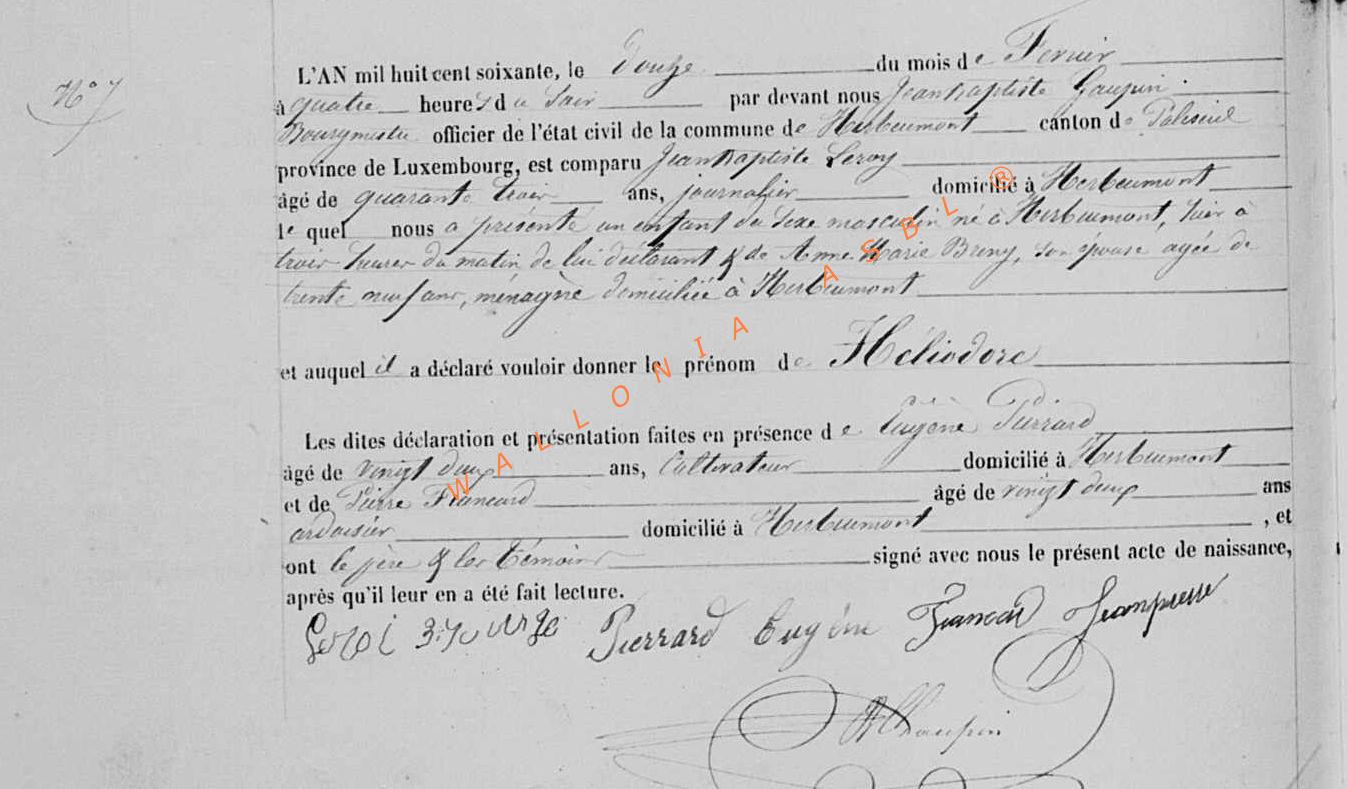 N° 7
L'AN mil huit cent soixante, le Douze du mois de Fevrier
à quatre heures du Soir par devant nous Jean Baptiste Gaupin
Bourgmestre officier de l'état civil de la commune de Herbeumont canton de Paliseul
province de Luxembourg, est comparu Jean Baptiste Leroy
âgé de quarante trois ans, journalier domicilié à Herbeumont
le quel nous a présenté un enfant du sexe masculin né à Herbeumont, hier à
trois heures du matin de lui déclarant & de Anne Marie Bruny, son épouse agée de
trente neuf ans, ménagère domiciliée à Herbeumont
et auquel il a déclaré vouloir donner le prénom de Héliodore
Les dites déclaration et présentation faites en présence de Eugène Pierrard
âgé de vingt deux ans, Cultivateur domicilié à Herbeumont
et de Pierre Francard âgé de vingt deux ans
ardoisier domicilié à Herbeumont, et
ont le père & les témoins signé avec nous le présent acte de naissance,
après qu'il leur en a été fait lecture.
Pierrard Eugéne Francard Jeanpierre
Gaupin
WALLONIA ASBL ®